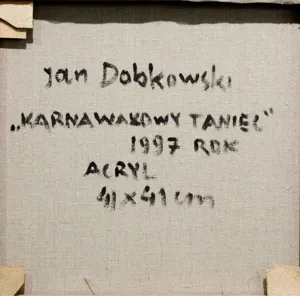 Jan Dobkowski
„KARNAWAŁOWY TANIEC"
1997 ROK
ACRYL
41x41cm